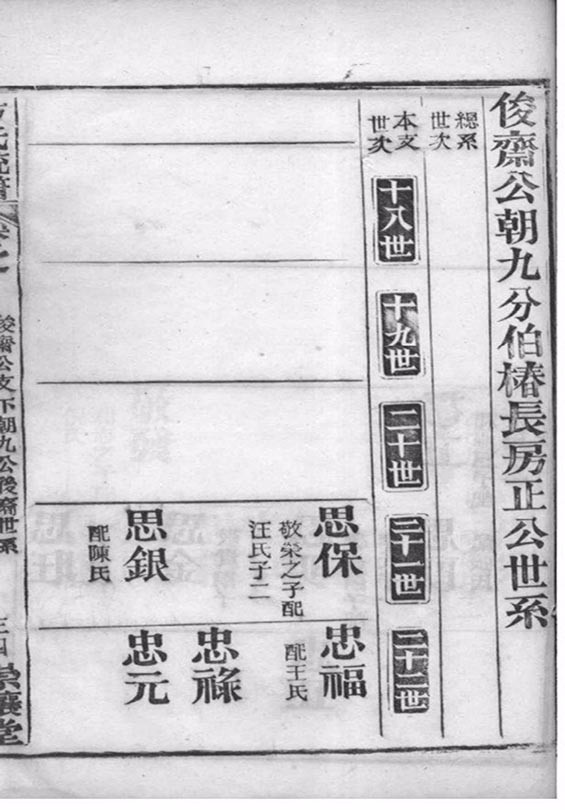 俊齋公朝九分伯椿長房正公世系
總系
世次
本支
世次
十八世
十九世
二十世
二十一世
二十二世
思保
敬榮之子配
汪氏子二
思銀
配陳氏
忠福
配王氏
忠祿
忠元
俊齋公支下朝九公後裔世系